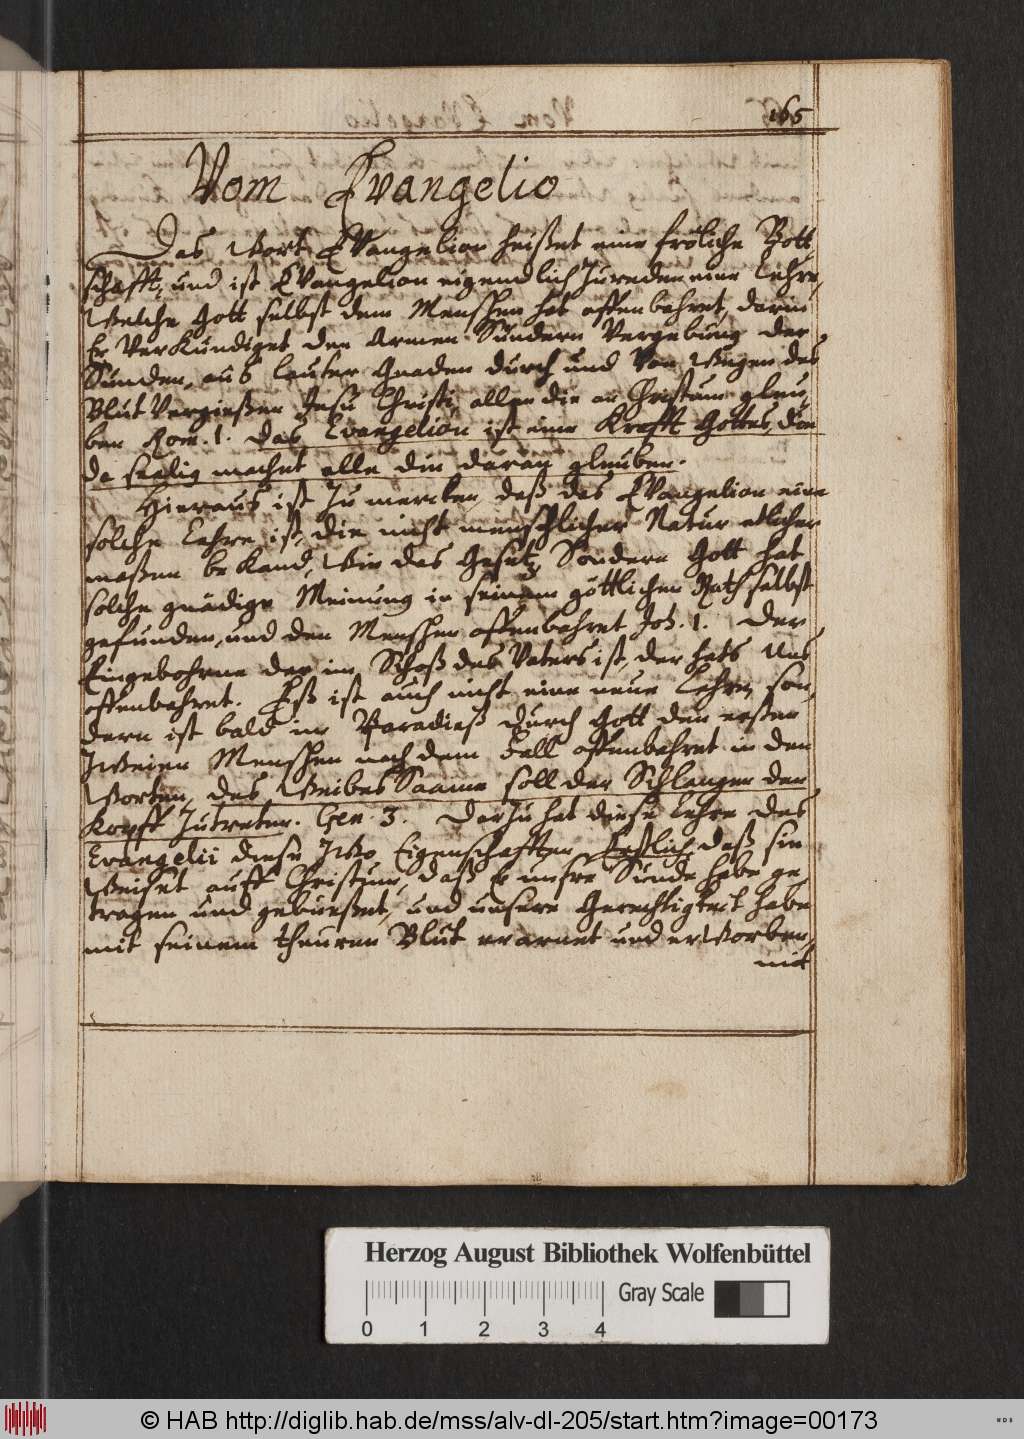 165
Vom Evangelio
Das Wort EVangelion heißet eine fröliche Bott
schafft, und ist EVangelion eigendlich Zureden eine Lehre,
Welche Gott selbst dem Menschen hat offenbahret, darin
Er VerKündiget den Armen Sündern Vergebung der
Sünden, aus lauter Gnaden durch und Von Wegen des
Blut Vergießen Jesu Christi, allen die an Christum gleu,
ben Rom. 1. Das Evangelion ist eine Krafft Gottes, die
da seelig machet alle die daran gleuben.
Hieraus ist Zu mercken, daß das EVangelion eine
solche Lehre ist, die nicht menschlicher Natur etlicher
maßen beKand, Wie das Gesetz, Sondern Gott hat
solche gnädige Meinung in seinem göttlichen Rath selbst
gefunden, und den Menschen offenbahret Joh. 1. Der
Eingebohrne der im Schoß des Vaters ist, der hats Uns
offenbahret. Eß ist auch nicht eine neue Lehre, son,
dern ist bald im Paradieß durch Gott den ersten
ZWeien Menschen nach dem Fall offenbahret in den
Worten, des Weibes Saame soll der Schlangen den
Kopff Zutreten. Gen. 3. DarZu hat diese Lehre des
Evangelii diese ZWo Eigenschafften, Erstlich, daß sie
Weiset auff Christum, daß Er unsre Sünde habe ge,
tragen und gebüeßet, und unsere Gerechtigkeit habe
mit seinem theuren Blut erarnet und erWorben,
mit
Herzog August Bibliothek Wolfenbüttel
Gray Scale
0 1 2 3 4
© HAB http://diglib.hab.de/mss/alv-dl-205/start.htm?image=00173